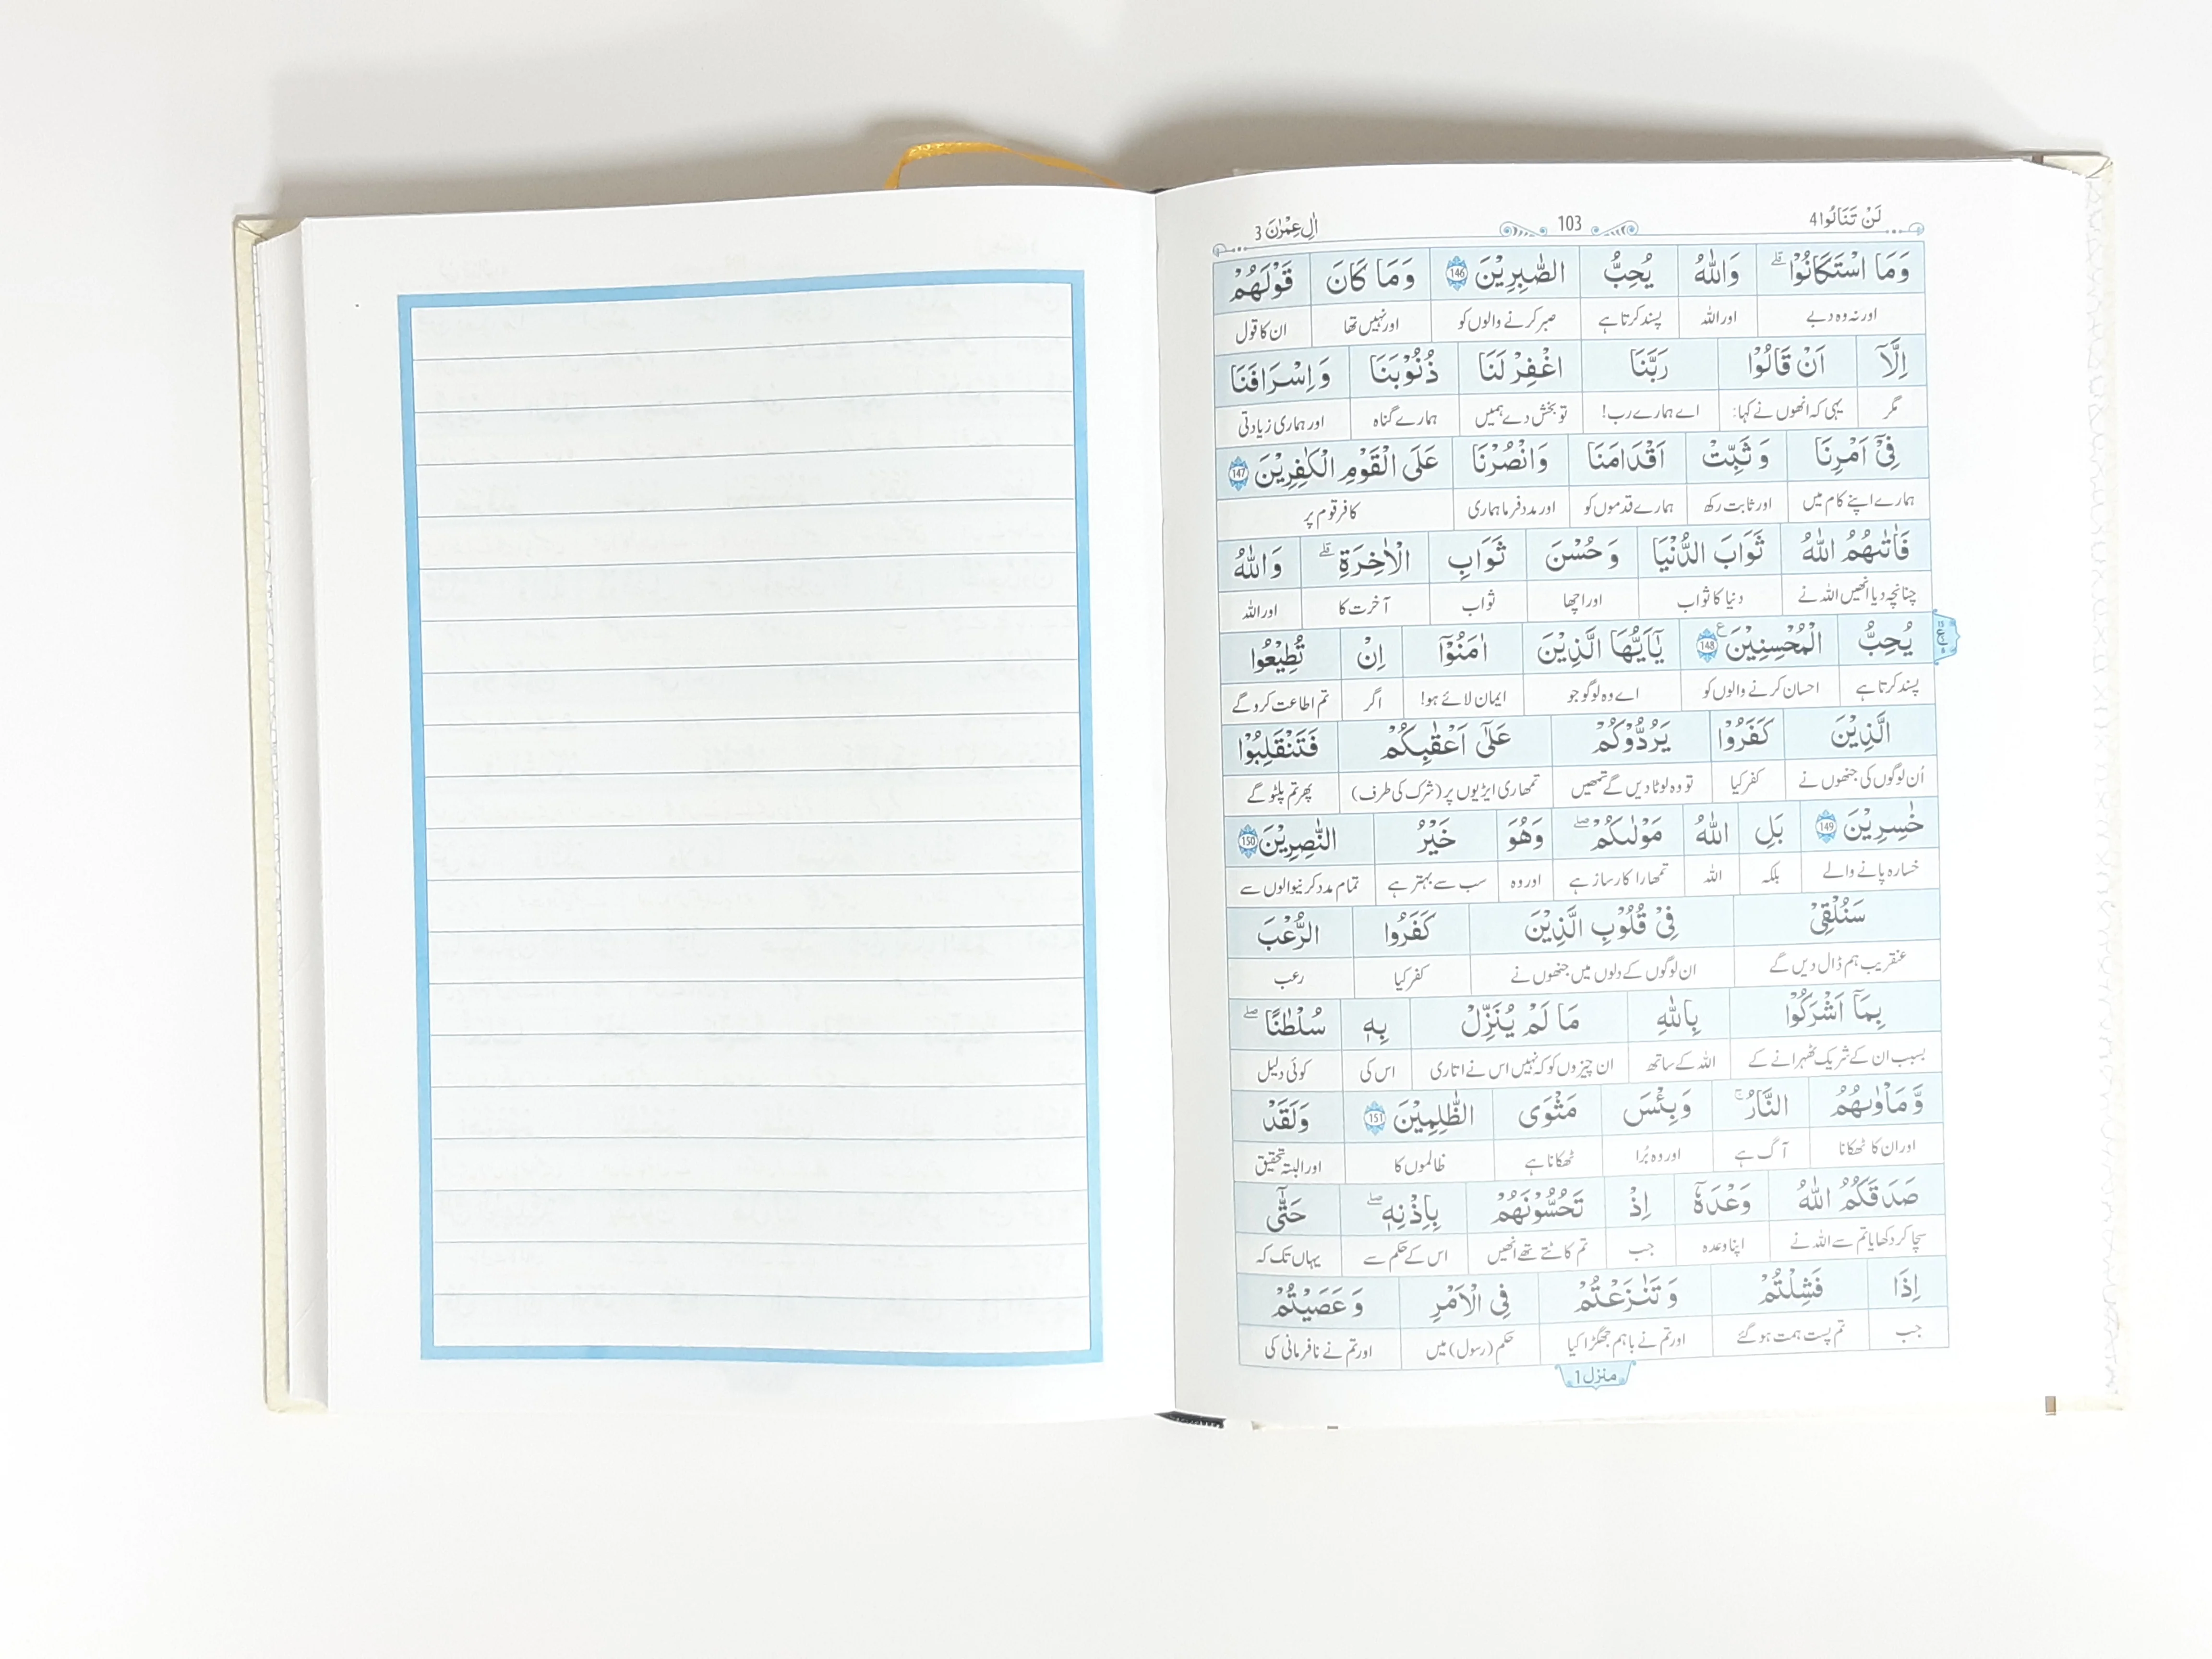 لَنْ تَنَالُوا 4 103 اٰلِ عِمْرٰنَ 3
وَمَا اسْتَكَانُوْا ۗ وَاللّٰهُ يُحِبُّ الصّٰبِرِيْنَ 146 وَمَا كَانَ قَوْلَهُمْ
اور نہ وہ دبے اور اللہ پسند کرتا ہے صبر کرنے والوں کو اور نہیں تھا ان کا قول
اِلَّاۤ اَنْ قَالُوْا رَبَّنَا اغْفِرْ لَنَا ذُنُوْبَنَا وَاِسْرَافَنَا
مگر یہی کہ انھوں نے کہا: اے ہمارے رب! تو بخش دے ہمیں ہمارے گناہ اور ہماری زیادتی
فِيْۤ اَمْرِنَا وَ ثَبِّتْ اَقْدَامَنَا وَانْصُرْنَا عَلَى الْقَوْمِ الْكٰفِرِيْنَ 147
ہمارے اپنے کام میں اور ثابت رکھ ہمارے قدموں کو اور مدد فرما ہماری کافر قوم پر
فَاٰتٰىهُمُ اللّٰهُ ثَوَابَ الدُّنْيَا وَ حُسْنَ ثَوَابِ الْاٰخِرَةِ ۗ وَاللّٰهُ
چنانچہ دیا انھیں اللہ نے دنیا کا ثواب اور اچھا ثواب آخرت کا اور اللہ
يُحِبُّ الْمُحْسِنِيْنَ 148 ع يٰۤاَيُّهَا الَّذِيْنَ اٰمَنُوْۤا اِنْ تُطِيْعُوا
پسند کرتا ہے احسان کرنے والوں کو اے وہ لوگو جو ایمان لائے ہو! اگر تم اطاعت کرو گے
الَّذِيْنَ كَفَرُوْا يَرُدُّوْكُمْ عَلٰۤى اَعْقٰبِكُمْ فَتَنْقَلِبُوْا
اُن لوگوں کی جنھوں نے کفر کیا تو وہ لوٹا دیں گے تمھیں تمھاری ایڑیوں پر (شرک کی طرف) پھر تم پلٹو گے
خٰسِرِيْنَ 149 بَلِ اللّٰهُ مَوْلٰىكُمْ ۖ وَهُوَ خَيْرُ النّٰصِرِيْنَ 150
خسارہ پانے والے بلکہ اللہ تمھارا کارساز ہے اور وہ سب سے بہتر ہے تمام مدد کرنیوالوں سے
سَنُلْقِيْ فِيْ قُلُوْبِ الَّذِيْنَ كَفَرُوا الرُّعْبَ
عنقریب ہم ڈال دیں گے ان لوگوں کے دلوں میں جنھوں نے کفر کیا رعب
بِمَاۤ اَشْرَكُوْا بِاللّٰهِ مَا لَمْ يُنَزِّلْ بِهٖ سُلْطٰنًا ۖ
بسبب ان کے شریک ٹھہرانے کے اللہ کے ساتھ ان چیزوں کو کہ نہیں اس نے اتاری اس کی کوئی دلیل
وَّمَاْوٰىهُمُ النَّارُ ۚ وَبِئْسَ مَثْوَى الظّٰلِمِيْنَ 151 وَلَقَدْ
اور ان کا ٹھکانا آگ ہے اور وہ بُرا ٹھکانا ہے ظالموں کا اور البتہ تحقیق
صَدَقَكُمُ اللّٰهُ وَعْدَهٗۤ اِذْ تَحُسُّوْنَهُمْ بِاِذْنِهٖ ۖ حَتّٰۤى
سچا کر دکھایا تم سے اللہ نے اپنا وعدہ جب تم کاٹتے تھے انھیں اس کے حکم سے یہاں تک کہ
اِذَا فَشِلْتُمْ وَ تَنٰزَعْتُمْ فِي الْاَمْرِ وَ عَصَيْتُمْ
جب تم پست ہمت ہو گئے اور تم نے باہم جھگڑا کیا حکم (رسول) میں اور تم نے نافرمانی کی
منزل 1